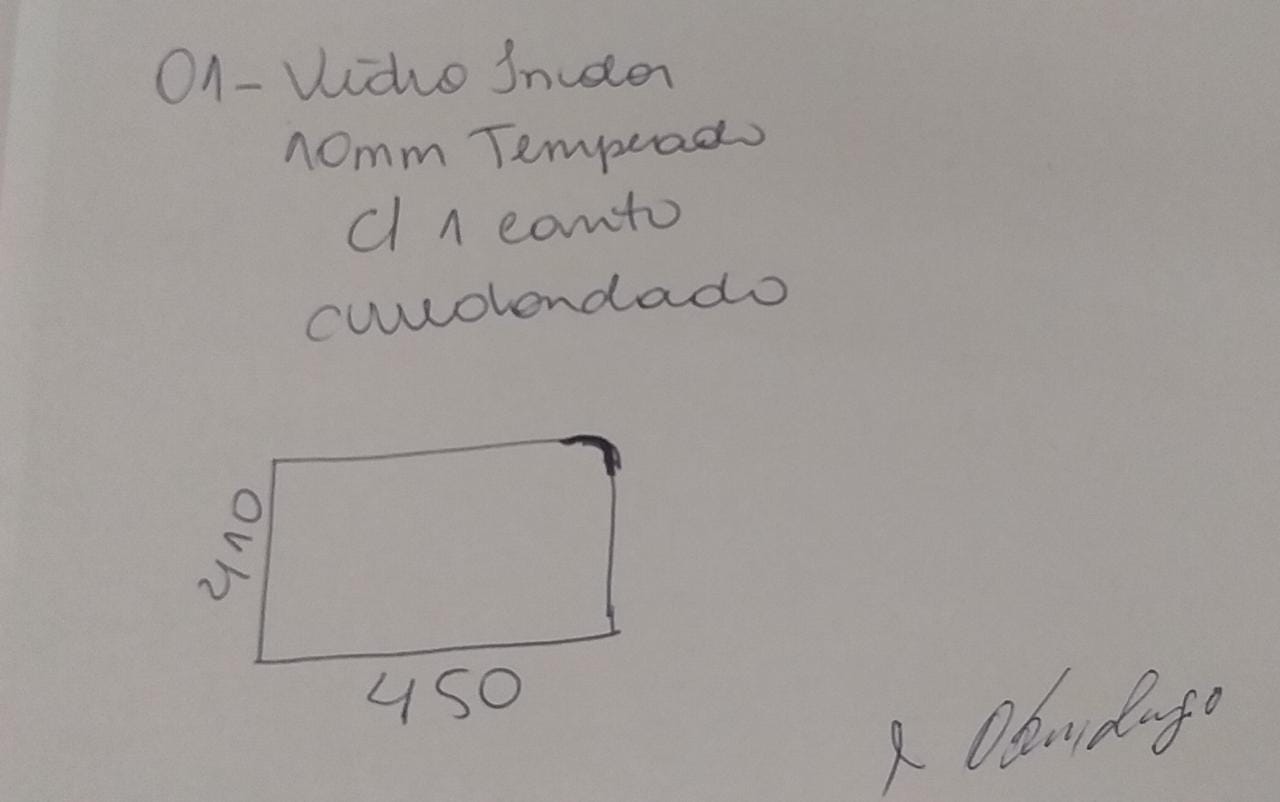 01- Vidro Incolor
10mm Temperado
c/ 1 canto
arredondado
410
450